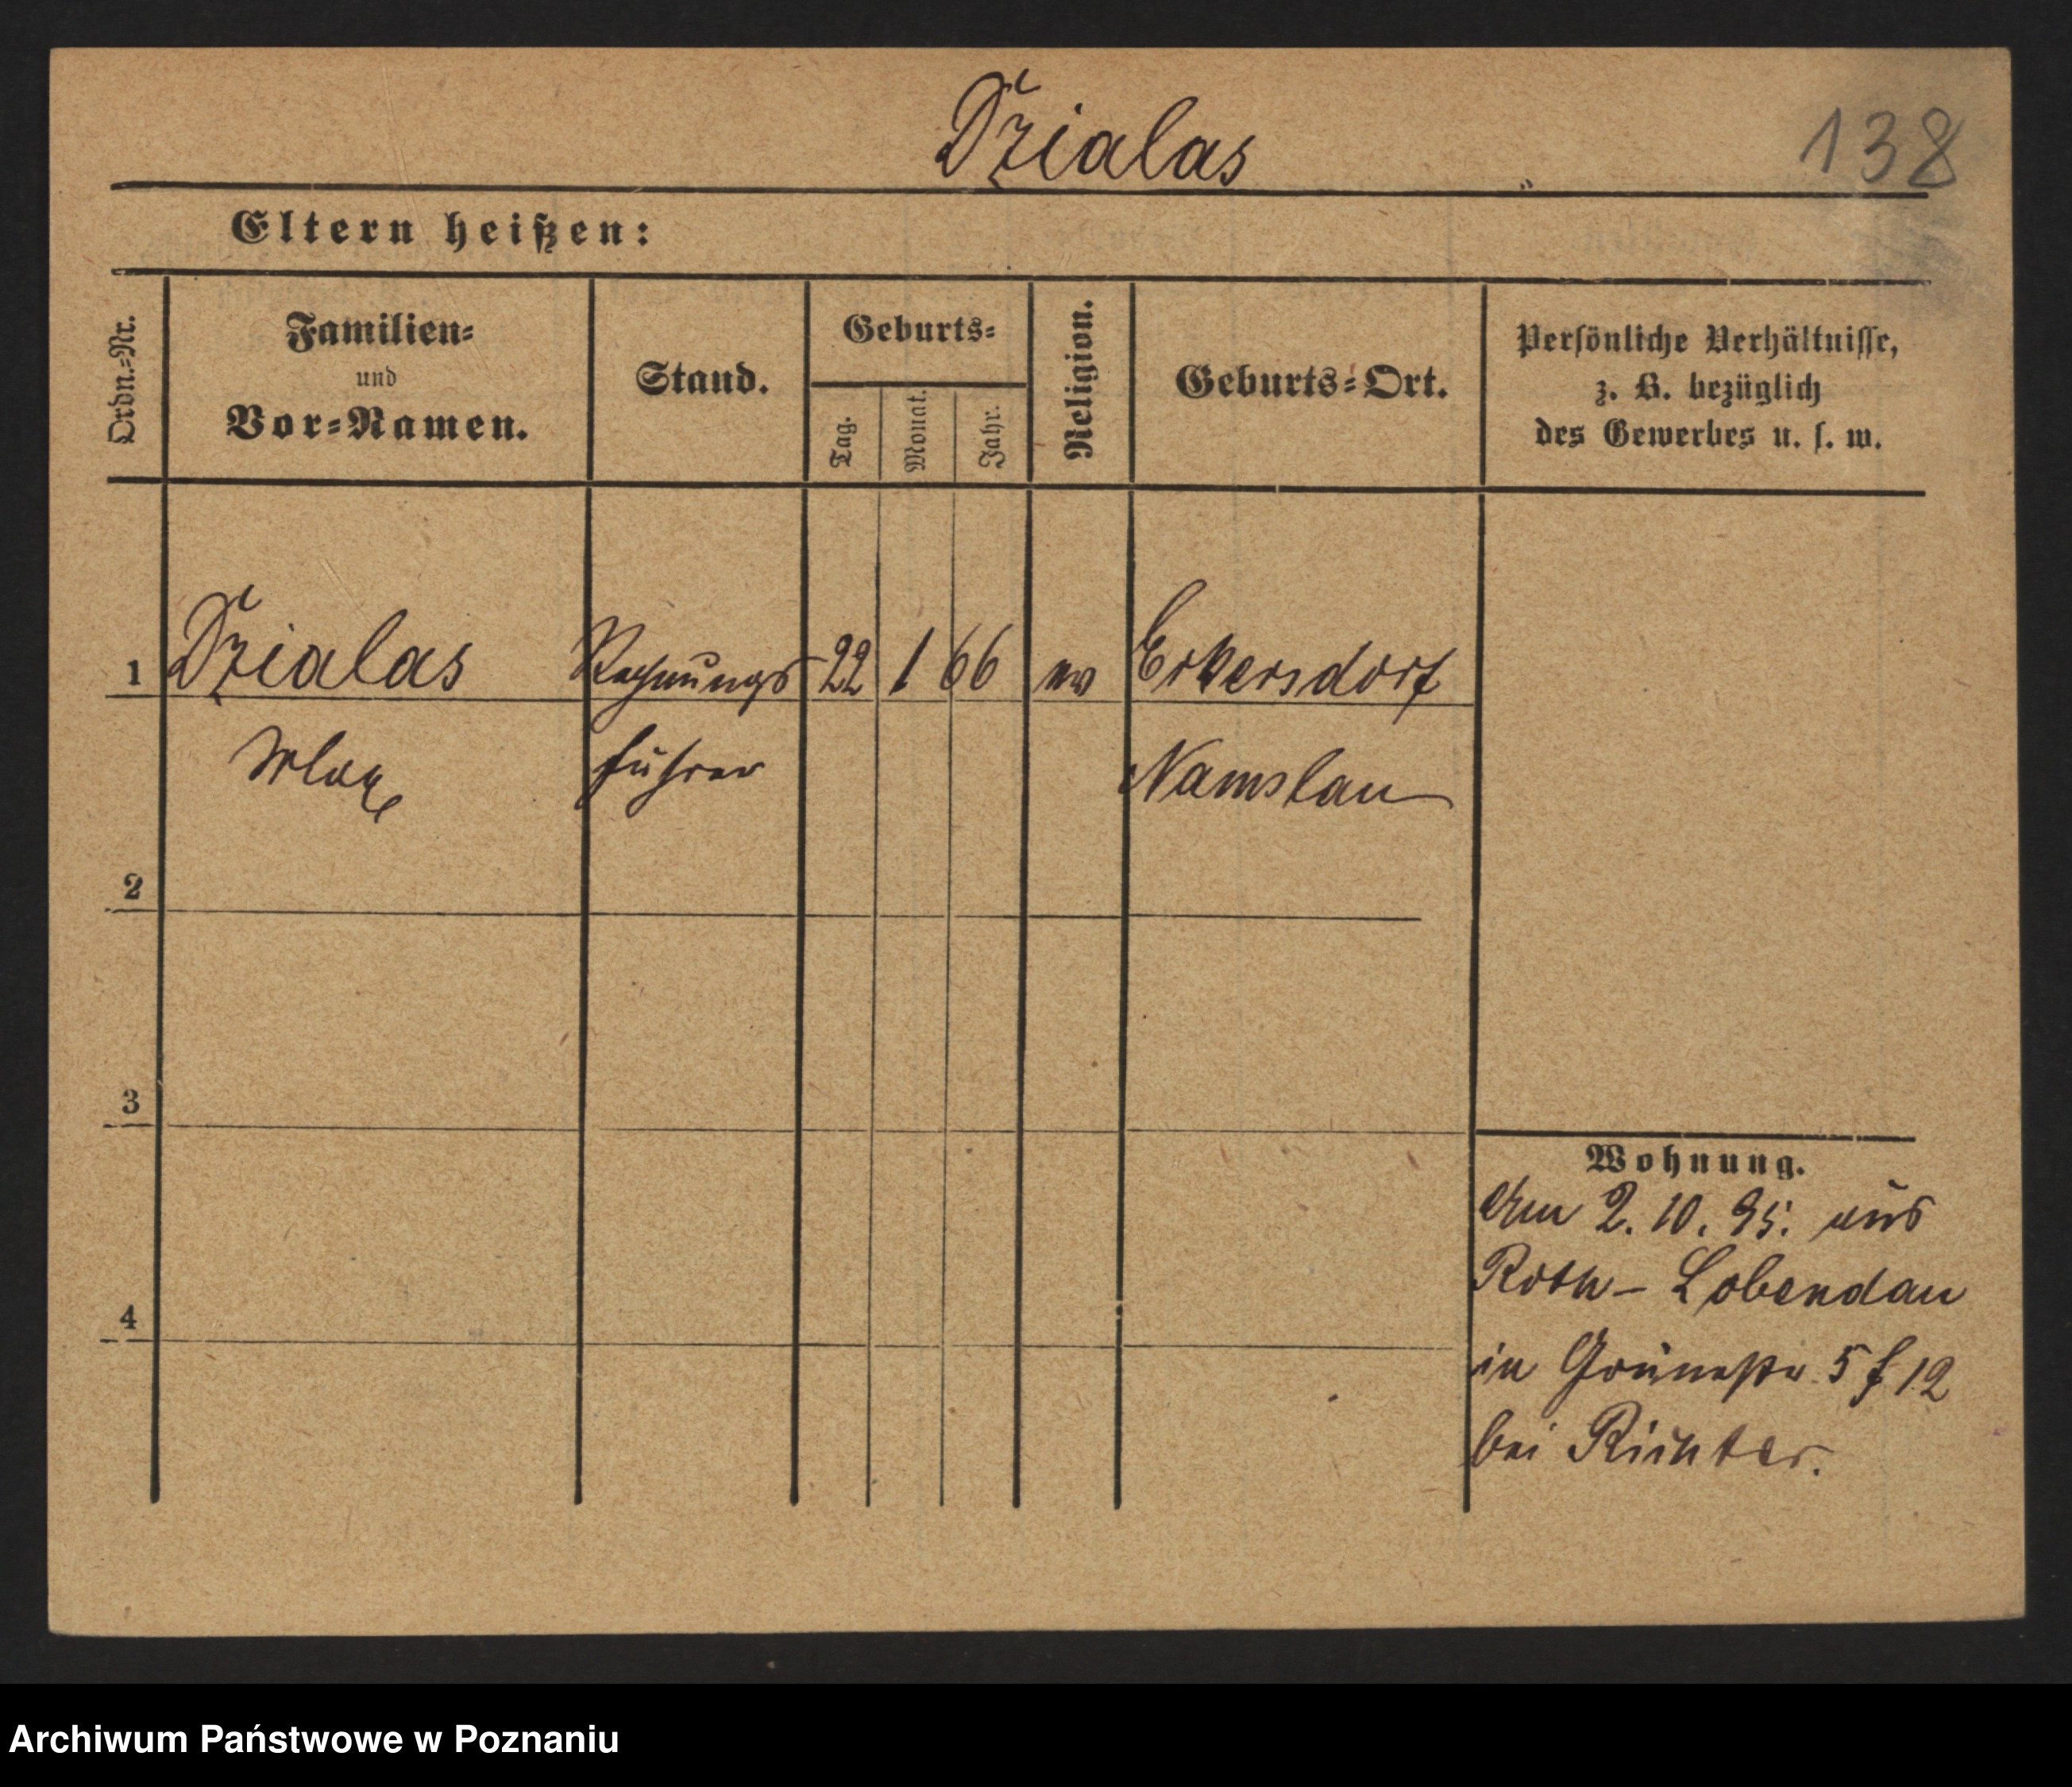 Dzialas
138
Eltern heißen:
Ordn.-Nr.
Familien-
und
Vor-Namen.
Stand.
Geburts-
Tag.
Monat.
Jahr.
Religion.
Geburts-Ort.
Persönliche Verhältnisse,
z. B. bezüglich
des Gewerbes u. s. w.
1 Dzialas Rechnungs 22 1 66 ev Eckersdorf
Max führer Namslau
2
3
4
Wohnung.
Am 2. 10. 95. aus
Roth- Lobendau
in Grünestr. 5 f 12
bei Richter.
Archiwum Państwowe w Poznaniu